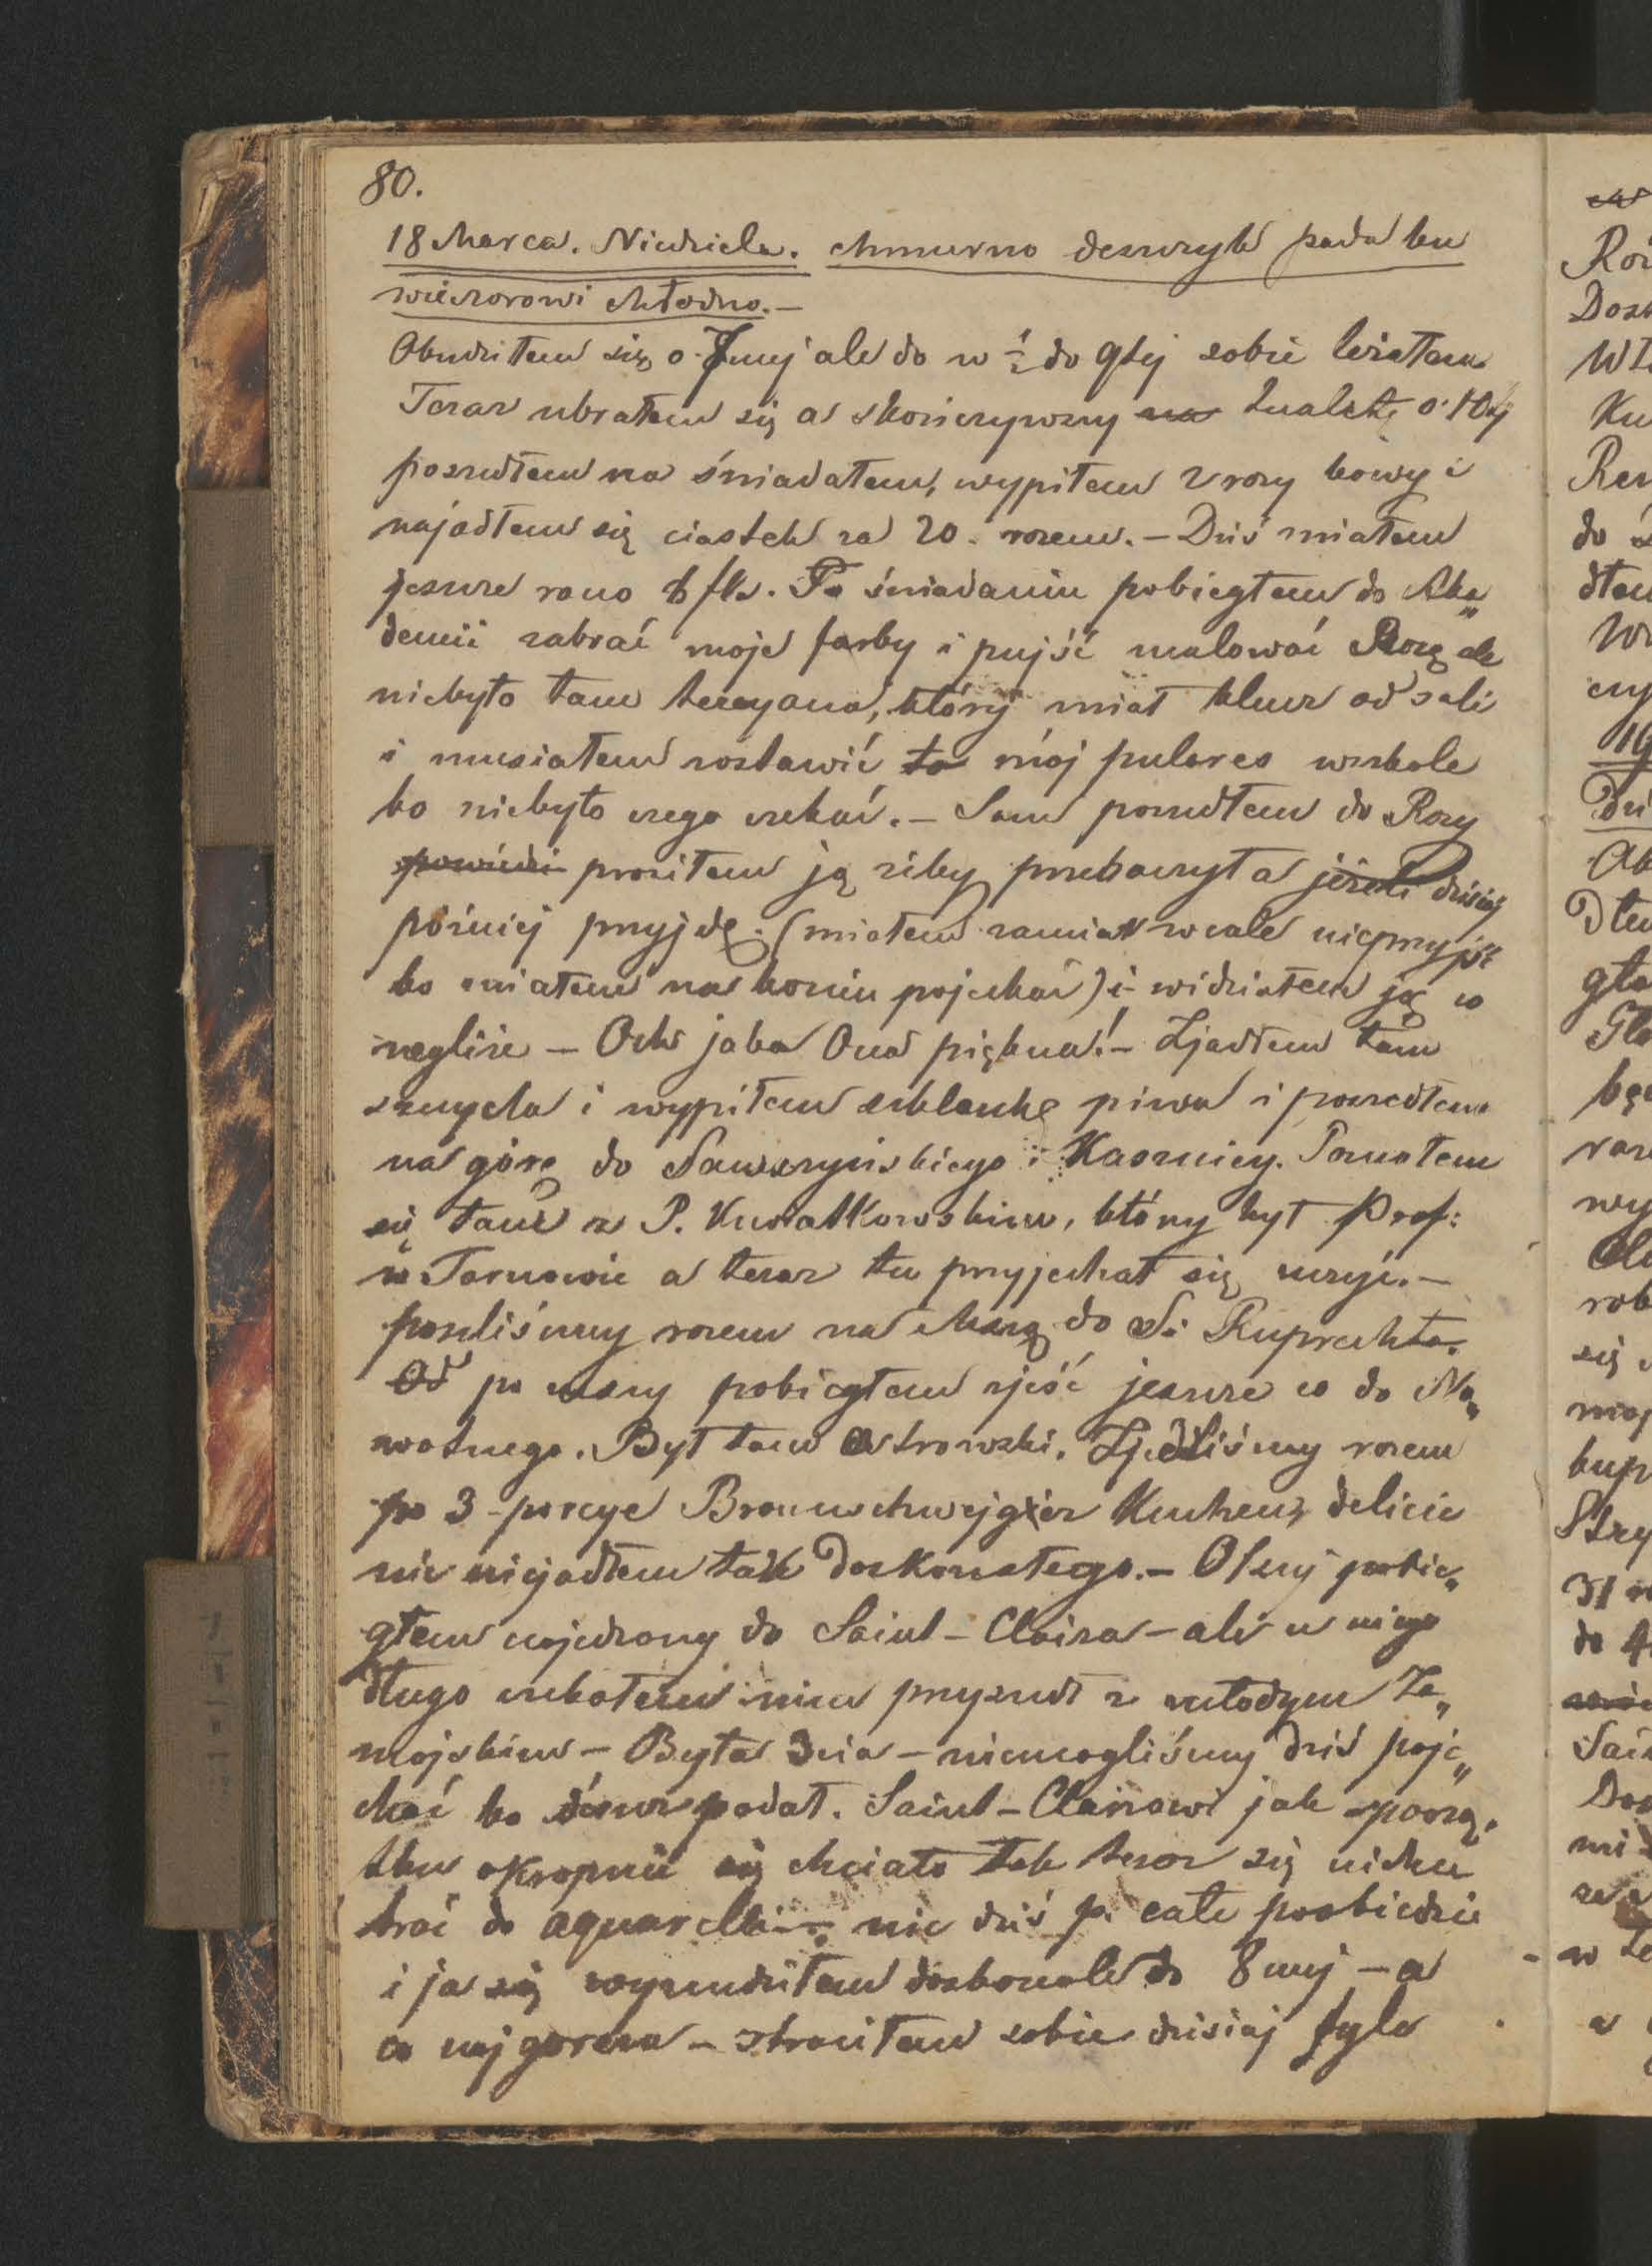 80.
18 Marca. Niedziela. chmurno deszczyk pada ku
wieczorowi chłodno.—
Obudziłem się o 7mej ale do w ½ do 9tej sobie leżałem
Teraz ubrałem się a skończywszy na tualetę o 10tej
poszedłem na śniadałem, wypiłem 2 razy kawy i
najadłem się ciastek za 20. razem. — Dziś miałem
jeszcze rano 8 fls. Po śniadaniu pobiegłem do Aka„
demii zabrać moje farby i pujść malować Rozę ale
niebyło tam tercyana, który miał klucz od sali
i musiałem zostawić to mój pulares w szkole
bo niebyło czego czekać. — Sam poszedłem do Rozy
powiedzi prosiłem ją żeby przebaczyła jeżeli dzisiaj
później przyjdę. (miałem zamiar wcale nieprzyjść
bo miałem na koniu pojechać) i widziałem ją w
negliże — Och jaka Ona piękna! — Zjadłem tam
sznycla i wypiłem szklankę piwa i poszedłem
na górę do Sawczyńskiego i Kasznicy. Poznałem
się tam z P. Kwiatkowskim, który był Prof:
w Tarnowie a teraz tu przyjechał się uczyć. —
poszliśmy razem na Mszą do St. Ruprechta.
Od po mszy pobiegłem zjeść jeszcze co do No„
wotnego. Był tam Ostrowski. Zjedliśmy razem
po 3 porcye Braunschwejgier Kuchens, delicie
nic niejadłem tak doskonałego. — O 1szej pobie„
głem najedzony do Saint-Claira — ale u niego
długo czekałem nim przyszedł z młodym Za„
mojskim — Była 3cia — niemogliśmy dziś poje„
chać bo deszcz padał. Saint-Clairowi jak z począ„
tku okropnie się chciało tak teraz się niechce
brać do aquarelli nic dziś po całe poobiedzie
i ja się wynudziłem doskonale do 8mej — a
co najgorsza — straciłem sobie dzisiaj tyle